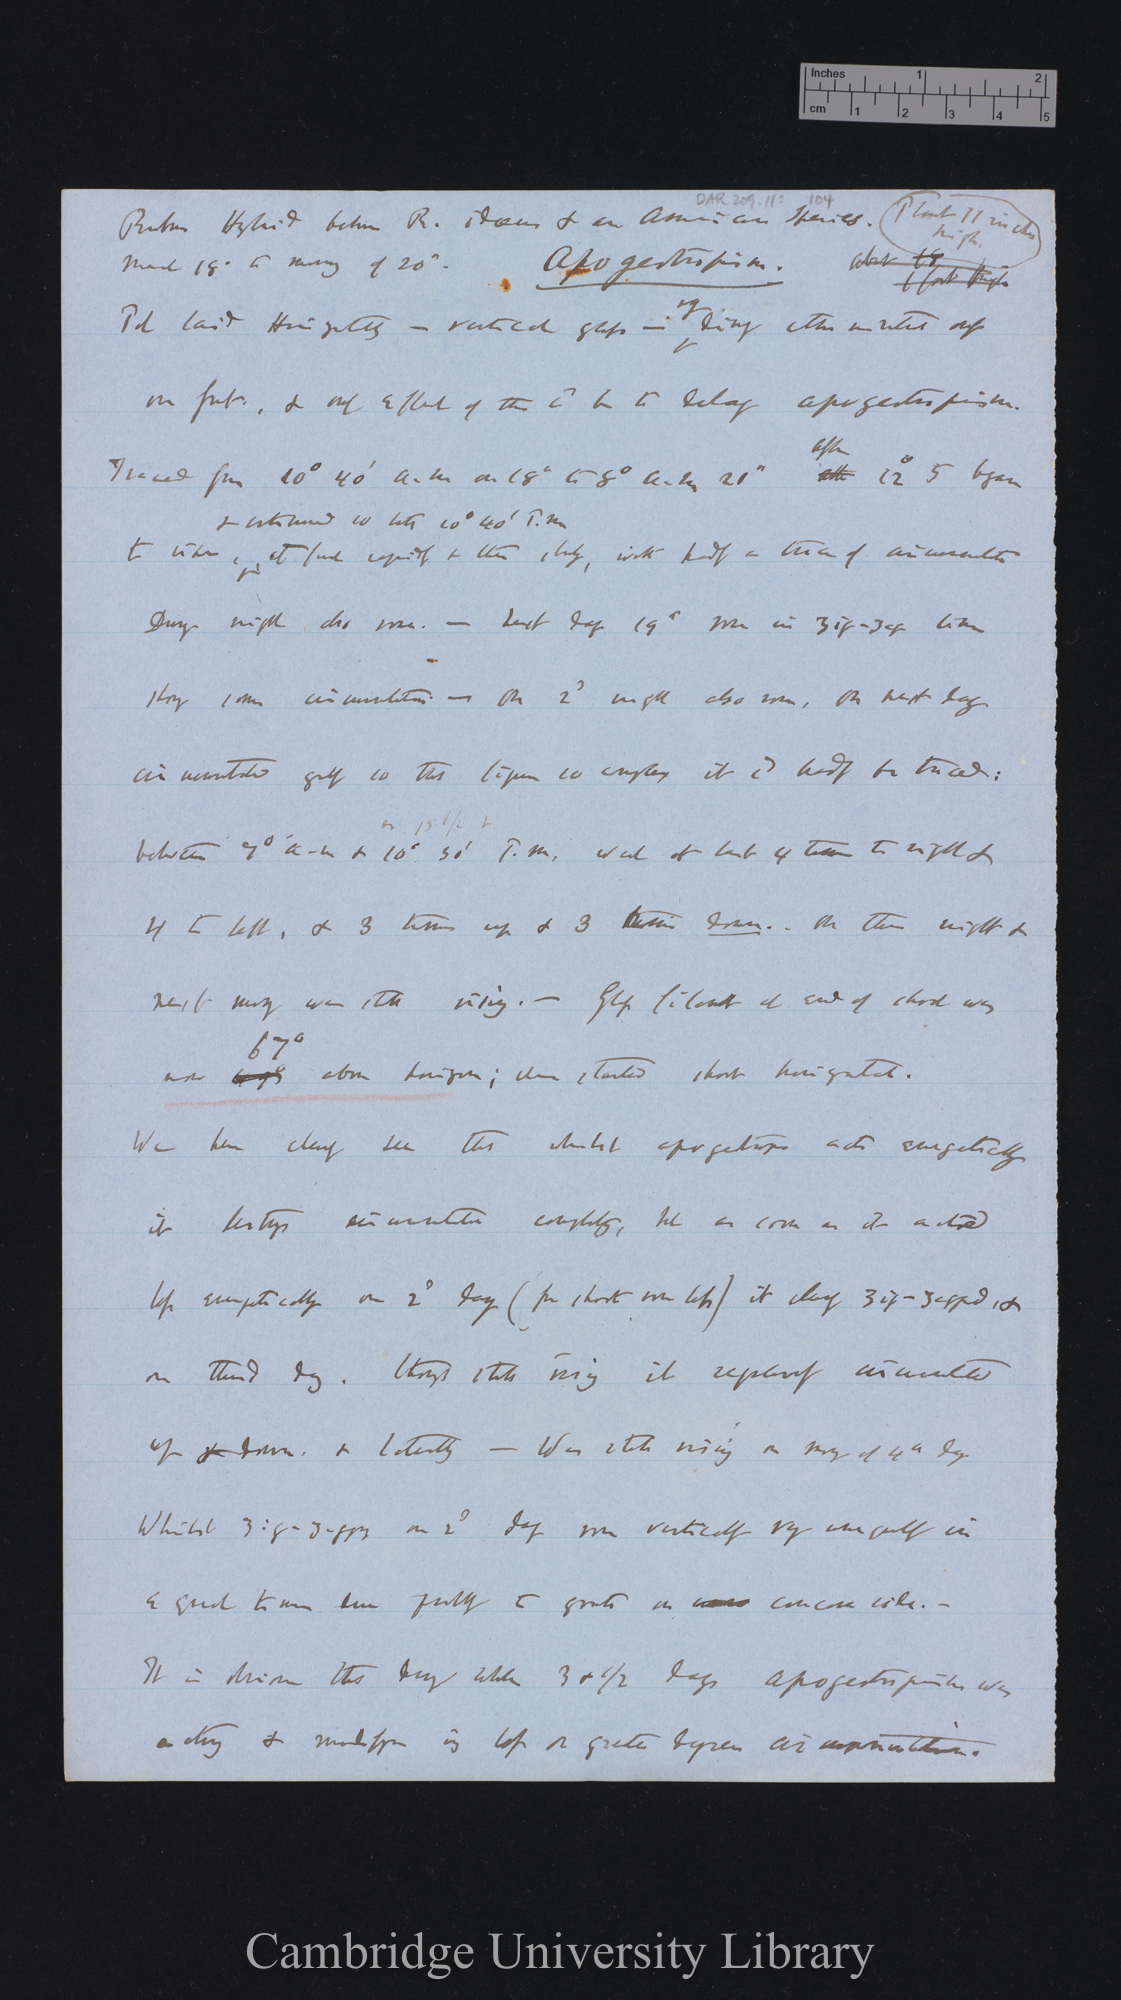 Inches 1 2
cm 1 2 3 4 5
DAR 209.11: 104
Rubus Hybrid between R. idaeus & an American Species.
Plant 11 inches high.
March 18th to morning of 20th.
Apogeotropism.
about 18
1 foot high
Pot laid Horizontally — vertical glass —
only effect of this to be to delay apogeotropism.
Traced from 10° 40' a.m on 18th to 8° a.m 20th after 12° 5 began
& continued so till 10° 40' P.m
to rise, at first rapidly & then slowly, with hardly a trace of circumnutation
During night also rose. — Next day 19th rose in zig-zag line
showing some circumnutation — On 2d night also rose, On next day
circumnutated greatly so that figure so complex it could hardly be traced:
or 15 1/2
between 7° a-m & 10° 30' P.m, went at least 4 times to right &
4 to left, & 3 times up & 3 times down. On this night &
next morning was still rising. — Glass filament at end of shoot was
67°
now above horizon; when started shoot horizontal.
We here clearly see that whilst apogeotropism acts energetically
it destroys circumnutation completely, but as soon as it acted
less energetically on 2d day (for shoot rose less) it clearly zig-zagged, &
on third day, though still rising it circumnutated
up & down & laterally — Was still rising on morning of 4th day
Whilst zig-zagging on 2d day rose vertically very unequally in
equal times due partly to growth on concave side. —
It is obvious that during whole 3 & 1/2 days apogeotropism was
acting & modifying in less or greater degree circumnutation.
Cambridge University Library